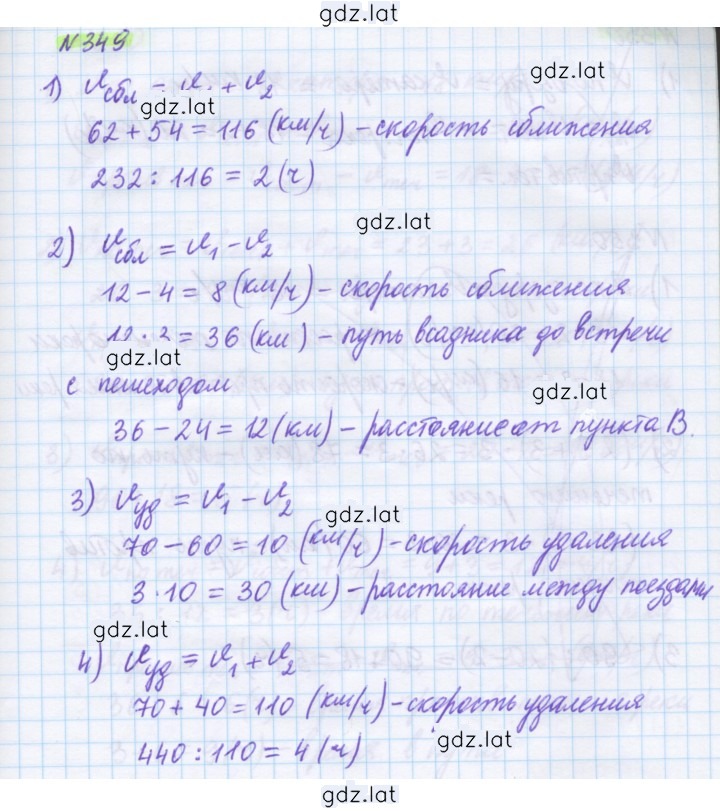 gdz.lat
N 349
gdz.lat
1) Vсбл = V1 + V2
gdz.lat
62 + 54 = 116 (км/ч) – скорость сближения
232 : 116 = 2 (ч)
gdz.lat
2) Vсбл = V1 – V2
12 – 4 = 8 (км/ч) – скорость сближения
12 · 3 = 36 (км) – путь всадника до встречи
gdz.lat
с пешеходом
gdz.lat
36 – 24 = 12 (км) – расстояние от пункта В.
3) Vуд = V1 – V2
gdz.lat
70 – 60 = 10 (км/ч) – скорость удаления
3 · 10 = 30 (км) – расстояние между поездами
gdz.lat
4) Vуд = V1 + V2
70 + 40 = 110 (км/ч) – скорость удаления
gdz.lat
440 : 110 = 4 (ч)
gdz.lat